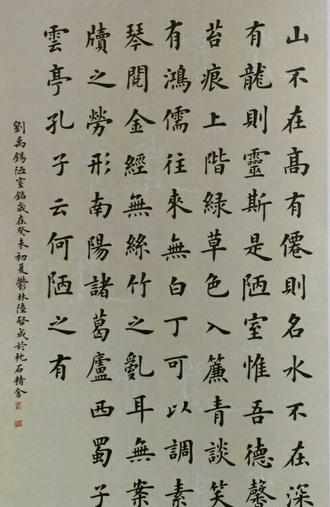 山不在高有僊則名水不在深
有龍則靈斯是陋室惟吾德馨
苔痕上階綠草色入簾青談笑
有鴻儒往來無白丁可以調素
琴閱金經無絲竹之亂耳無案
牘之勞形南陽諸葛廬西蜀子
雲亭孔子云何陋之有
劉禹錫陋室銘歲在癸未初夏鬱林陸於石精舍